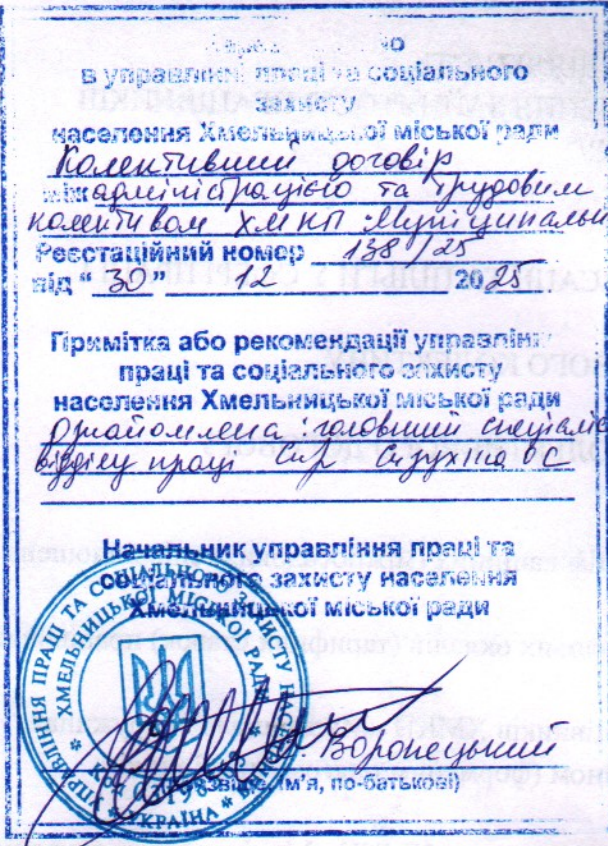 в управлінні праці та соціального
захисту
населення Хмельницької міської ради
Колективний договір
між адміністрацією та трудовим
колективом ХМКП Муніципальн
Реєстаційний номер 138/25
від “30” 12 2025
Примітка або рекомендації управління
праці та соціального захисту
населення Хмельницької міської ради
ознайомлена: головний спеціаліс
відділу праці
Начальник управління праці та
соціального захисту населення
Хмельницької міської ради
Воронецький
(прізвище, ім'я, по-батькові)
УПРАВЛІННЯ ПРАЦІ ТА СОЦІАЛЬНОГО ЗАХИСТУ НАСЕЛЕННЯ
ХМЕЛЬНИЦЬКОЇ МІСЬКОЇ РАДИ
УКРАЇНА